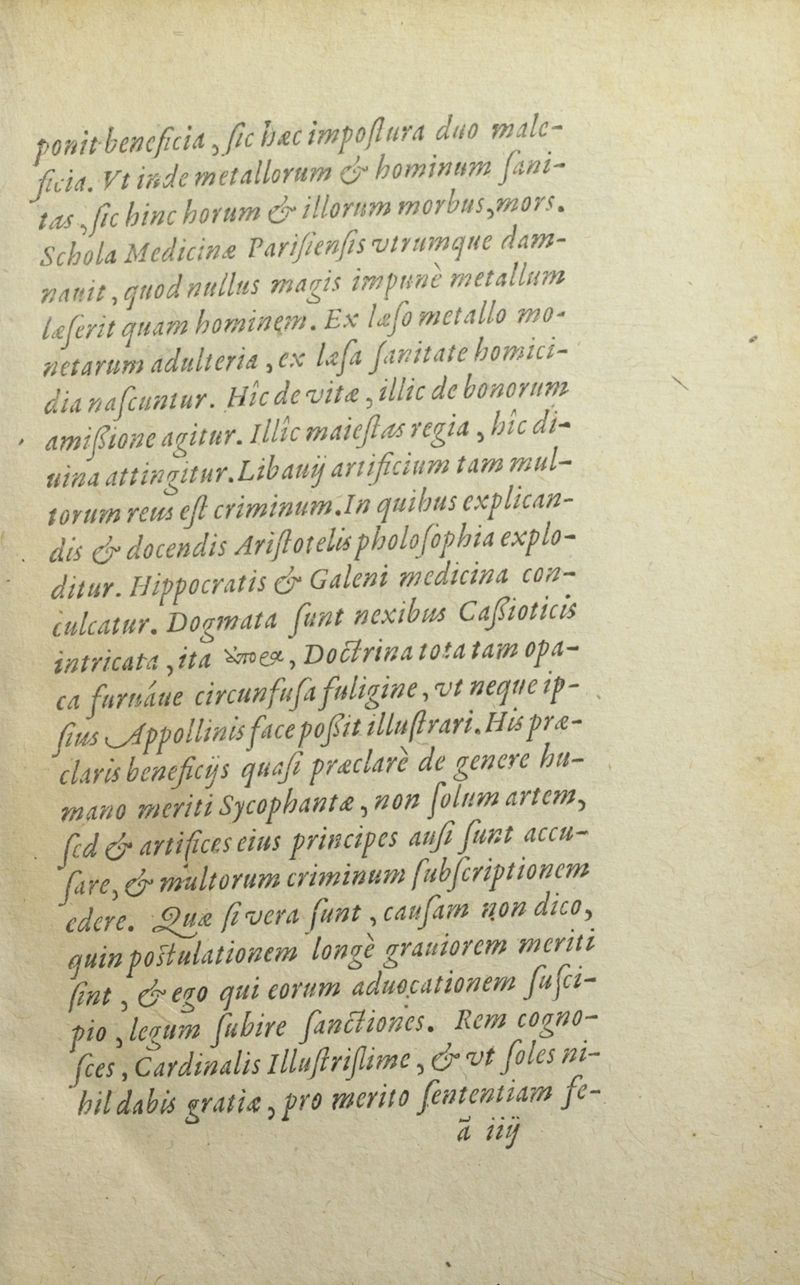 ponit beneficia, ſic hæc impoſtura duo male-
ficia. Vt inde metallorum & hominum ſani-
tas, ſic hinc horum & illorum morbus, mors.
Schola Medicinæ Pariſienſis vtrumque dam-
nauit, quod nullus magis impunè metallum
læſerit quam hominem. Ex læſo metallo mo-
netarum adulteria, ex læſa ſanitate homici-
dia naſcuntur. Hîc de vitæ, illic de bonorum
amißione agitur. Illîc maieſtas regia, hîc di-
uina attingitur. Libauij artificium tam mul-
torum reus eſt criminum. In quibus explican-
dis & docendis Ariſtotelis pholoſophia explo-
ditur. Hippocratis & Galeni medicina con-
culcatur. Dogmata ſunt nexibus Caßioticis
intricata, ita, Doctrina tota tam opa-
ca furuáue circunfuſa fuligine, vt neque ip-
ſius Appollinis face poßit illuſtrari. His præ-
claris beneficijs quaſi præclarè de genere hu-
mano meriti Sycophantæ, non ſolum artem,
ſed & artifices eius principes auſi ſunt accu-
ſare, & multorum criminum ſubſcriptionem
edere. Quæ ſi vera ſunt, cauſam non dico,
quin poſtulationem longè grauiorem meriti
ſint, & ego qui eorum aduocationem ſuſci-
pio, legum ſubire ſanctiones. Rem cogno-
ſces, Cardinalis Illuſtriſſime, & vt ſoles ni-
hil dabis gratiæ, pro merito ſententiam fe-
ã iiij